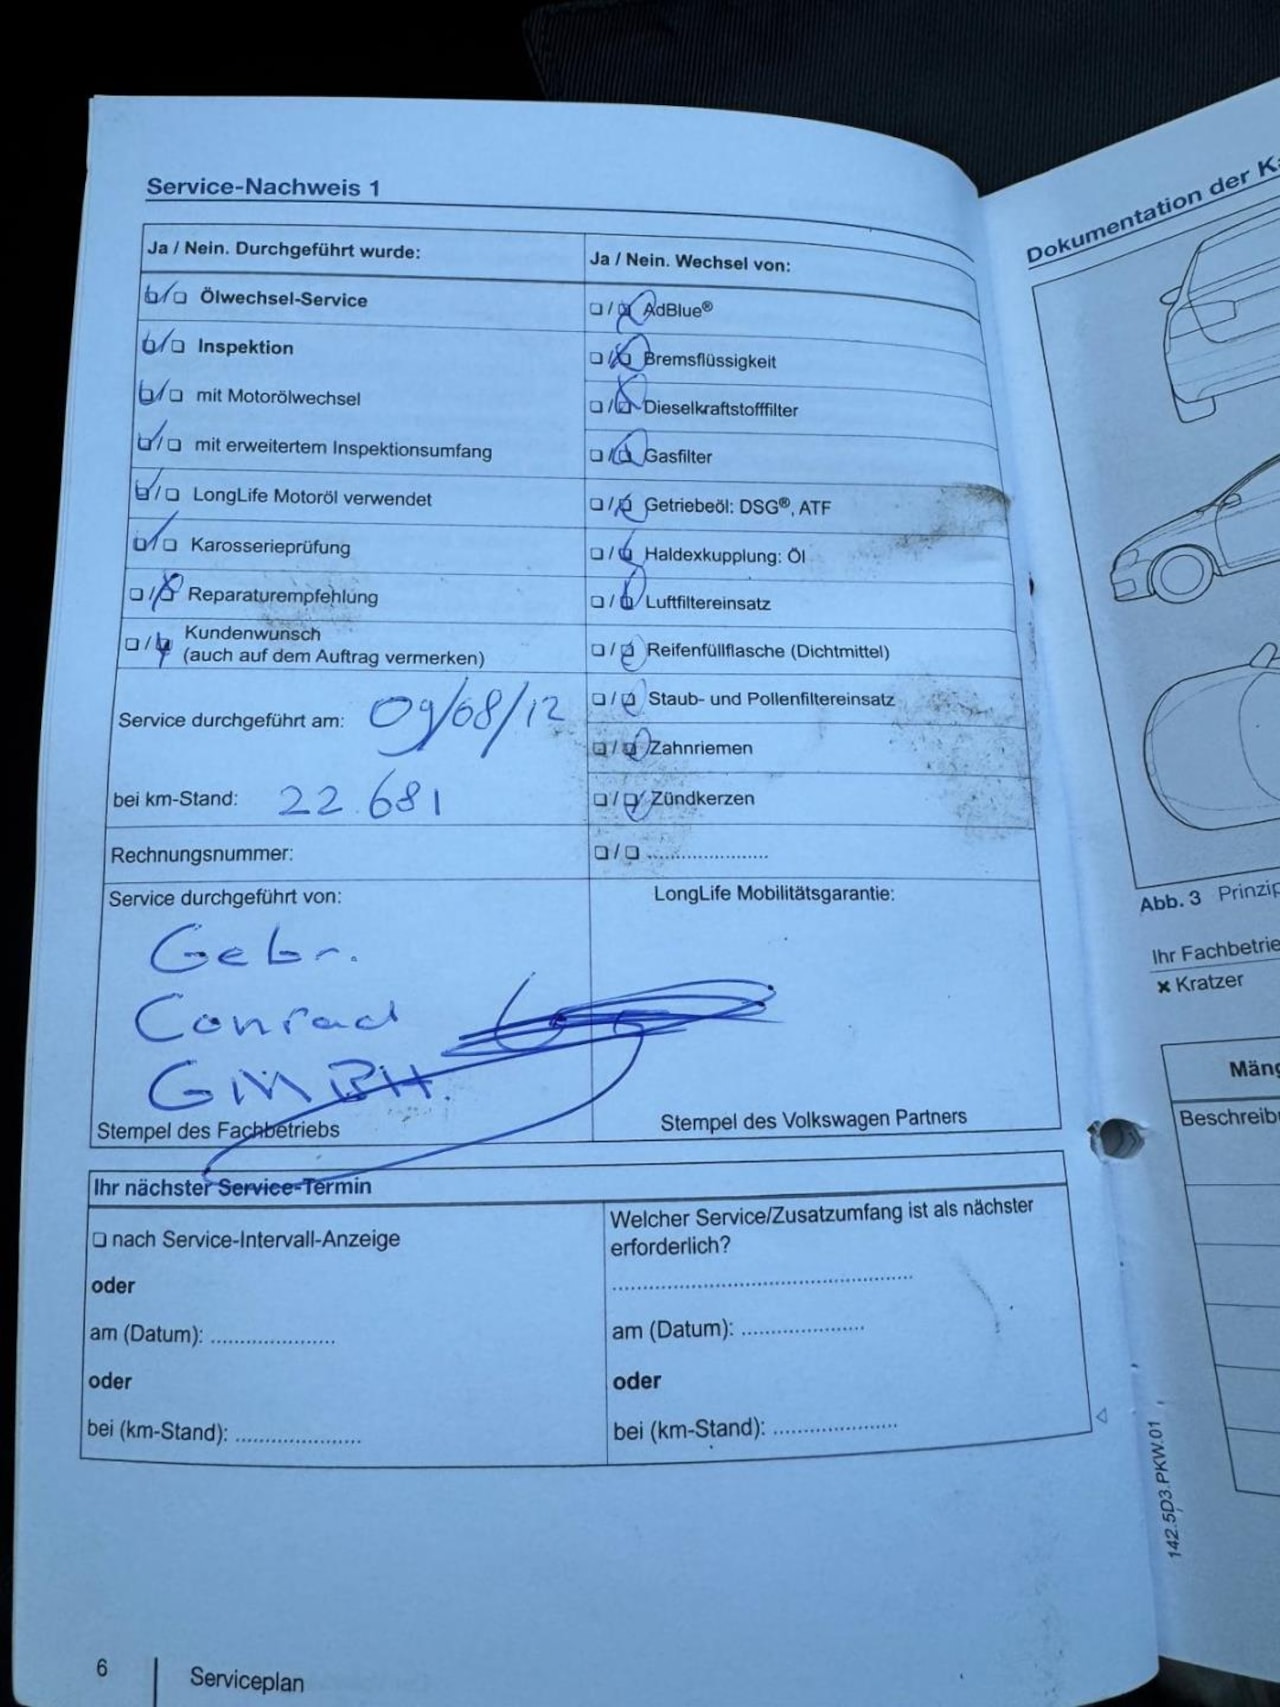 Service-Nachweis 1
Ja / Nein. Durchgeführt wurde:
❏/❏ Ölwechsel-Service
❏/❏ Inspektion
❏/❏ mit Motorölwechsel
❏/❏ mit erweitertem Inspektionsumfang
❏/❏ LongLife Motoröl verwendet
❏/❏ Karosserieprüfung
❏/❏ Reparaturempfehlung
❏/❏ Kundenwunsch
(auch auf dem Auftrag vermerken)
Service durchgeführt am: 09/08/12
bei km-Stand: 22.681
Rechnungsnummer:
Service durchgeführt von:
Gebr.
Conrad
GMBH.
Stempel des Fachbetriebs
Ja / Nein. Wechsel von:
❏/❏ AdBlue®
❏/❏ Bremsflüssigkeit
❏/❏ Dieselkraftstofffilter
❏/❏ Gasfilter
❏/❏ Getriebeöl: DSG®, ATF
❏/❏ Haldexkupplung: Öl
❏/❏ Luftfiltereinsatz
❏/❏ Reifenfüllflasche (Dichtmittel)
❏/❏ Staub- und Pollenfiltereinsatz
❏/❏ Zahnriemen
❏/❏ Zündkerzen
❏/❏ ......................
LongLife Mobilitätsgarantie:
Stempel des Volkswagen Partners
Ihr nächster Service-Termin
❏ nach Service-Intervall-Anzeige
oder
am (Datum): ......................
oder
bei (km-Stand): ......................
Welcher Service/Zusatzumfang ist als nächster
erforderlich?
......................................................
am (Datum): ......................
oder
bei (km-Stand): ......................
6
Serviceplan
142.5D3.PKW.01
Dokumentation der
Abb. 3
Ihr
× Kratzer